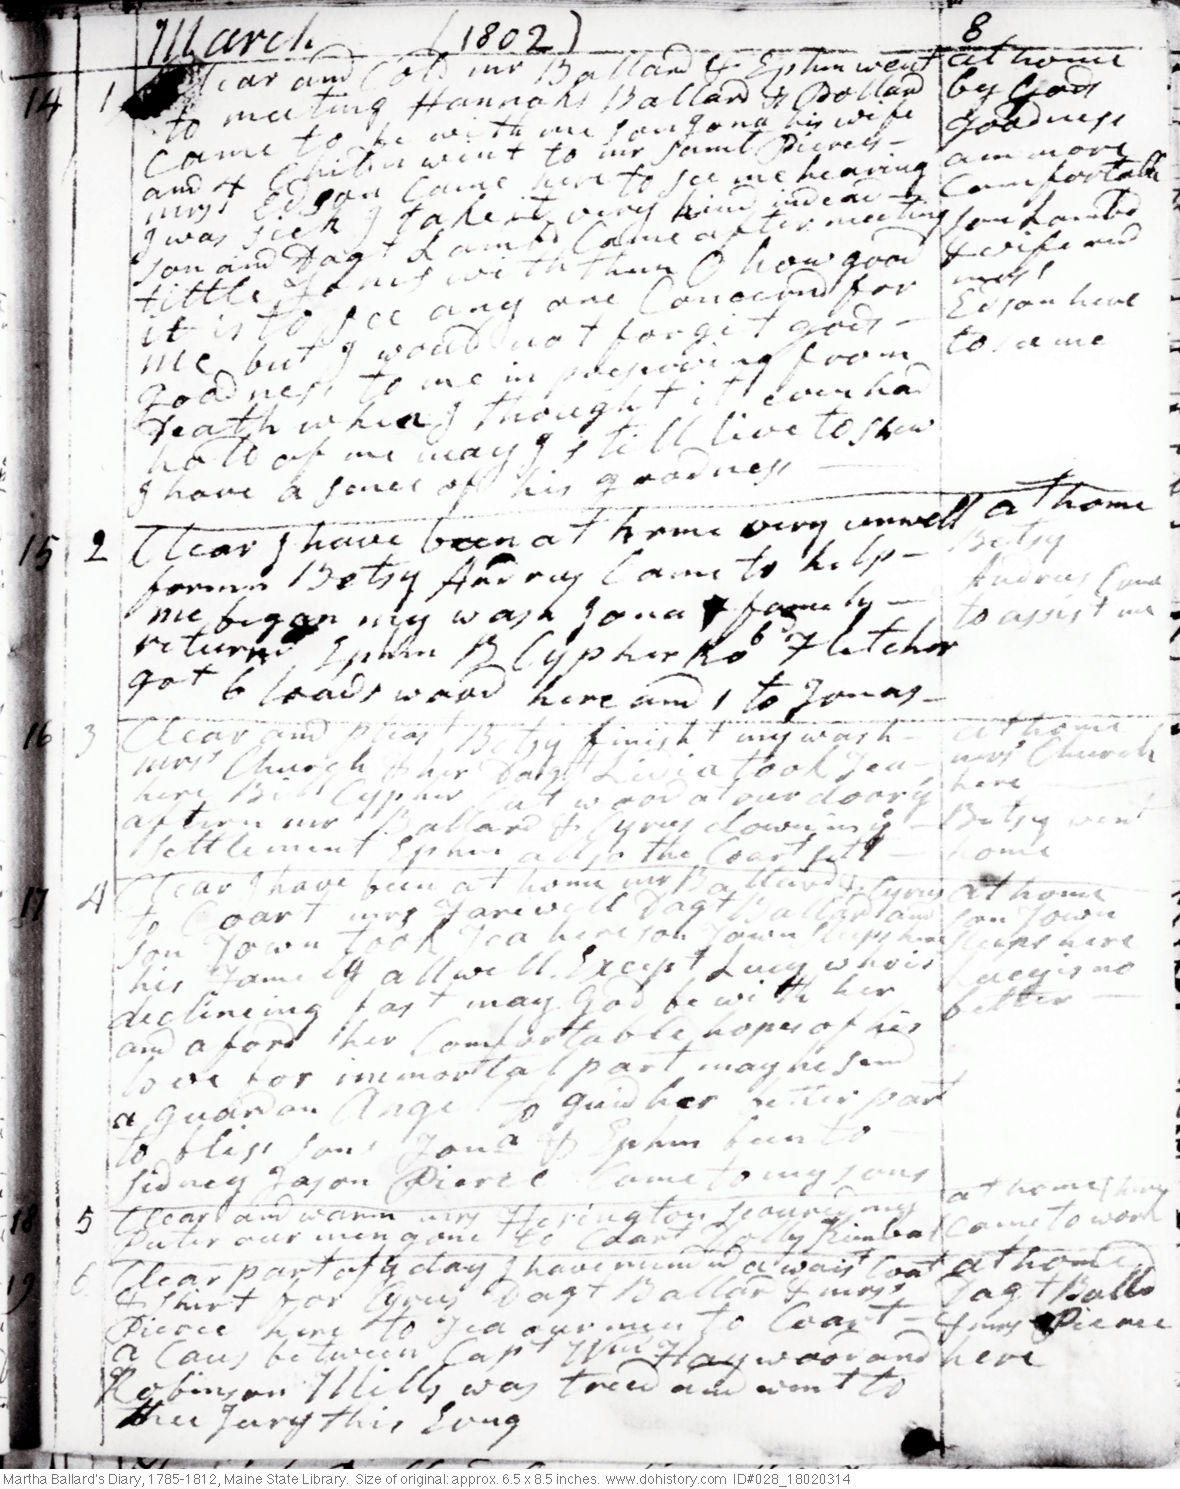 March (1802) 8
14 1 Clear and Cold mr Ballard & Ephm went
to meeting Hannahs Ballard & Pollard
Came to be with me son Jona his wife
and & Childn went to mr Saml Pierces -
mrss Edson Came here to see me hearing
I was sick I take it very kind indead -
son and Dagt Lambd Came after meeting
little with them O how good
it is to see any one Concernd for
me but I would not forgit gods -
goodness to me in preserving from
Death when I thought it even had
hold of me may I still live to shew
I have a sence of his goodness
at home
by Gods
goodness
am more
Comfortable
son Lambd
& wife and
mrss
Edson here
to se me
15 2 Clear I have been at home very unwell
forenn Betsy Andrus Came to help -
me began my wash Jona & family -
returnd Ephm B Cypher Robd Fletcher
got 6 loads wood here and 1 to Jonas -
at home
Betsy
Andrus Came
to assist me
16 3 Clear and pleast Betsy finisht my wash -
mrss Church & her Dagt Livia took Tea -
here Bill Cypher Cut wood at our door
aftern mr Ballard & Cyrus
settlement Ephm allso the Coart sett -
at home
mrs Church
here
Betsy went
home
17 4 Clear I have been at home mr Ballard & Cyrus
to Coart mrs Farewell Dagt Ballard and
son Town took Tea here son Town sleeps here
his Family all well Except Lucy who is
declineing fast may God be with her
and aford her Comfortable hopes of his
love for immortal part may he send
a guardan Angel to guid her better part
to bliss sons Jona & Ephm been to
Sidney Jason Pierce Came to my sons
at home
son Town
sleeps here
Lucy is no
better
18 5 Clear and warm mrs Herington scoured my
puter our men gone to Coart Polly Kimbal
at home
Came to work
19 6 Clear part of ye day I have mended a waist Coat
& shirt for Cyrus Dagt Ballard & mrss
Pierce here to Tea our men to Coart -
a Caus between Capt Wm Haywood and
Robinson Mills was tried and went to
thee Jury this Evng
at home
Dagt Balld
& mrs Pierce
here
Martha Ballard's Diary, 1785-1812, Maine State Library. Size of original: approx. 6.5 x 8.5 inches. www.dohistory.com ID#028_18020314